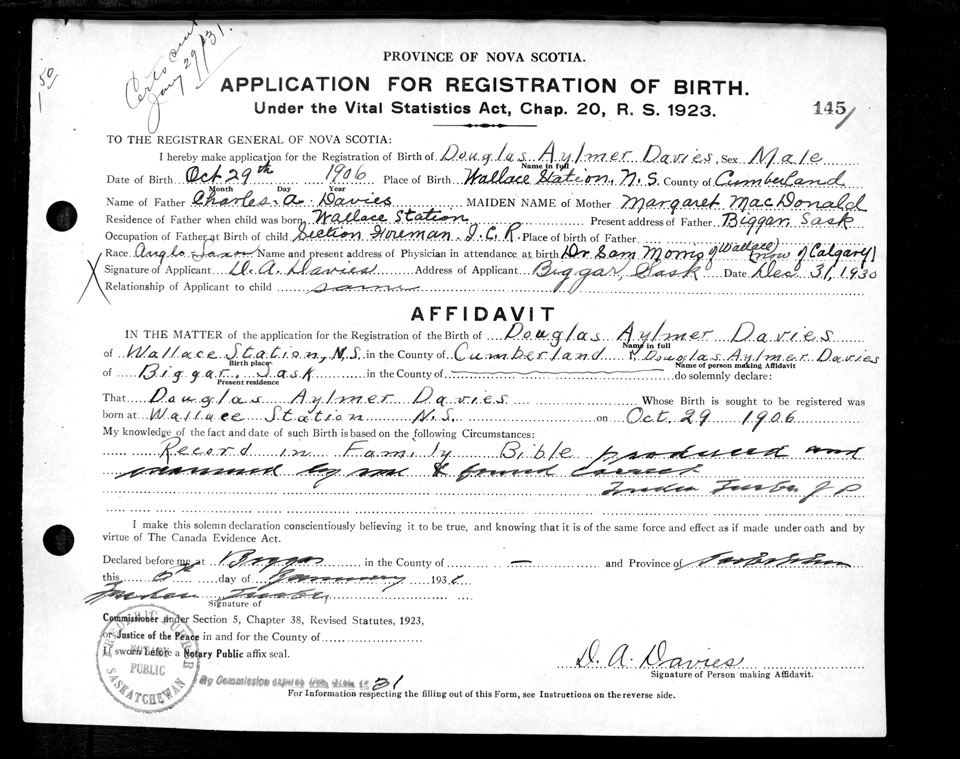 Certs out
Jany 29/31.
1 50
PROVINCE OF NOVA SCOTIA.
APPLICATION FOR REGISTRATION OF BIRTH.
Under the Vital Statistics Act, Chap. 20, R. S. 1923.
145
TO THE REGISTRAR GENERAL OF NOVA SCOTIA:
I hereby make application for the Registration of Birth of Douglas Aylmer Davies, Sex Male
Name in full
Date of Birth Oct 29th 1906 Place of Birth Wallace Station, N.S. County of Cumberland
Month Day Year
Name of Father Charles. A Davies MAIDEN NAME of Mother Margaret MacDonald
Residence of Father when child was born, Wallace Station Present address of Father Biggar Sask
Occupation of Father at Birth of child Section Foreman. I.C.R. Place of birth of Father
Race Anglo Saxon Name and present address of Physician in attendance at birth Dr Sam Morris of Wallace (now of Calgary)
Signature of Applicant D. A. Davies Address of Applicant Biggar, Sask Date Dec 31, 1930
X Relationship of Applicant to child same
AFFIDAVIT
IN THE MATTER of the application for the Registration of the Birth of Douglas Aylmer Davies
Name in full
of Wallace Station, N.S. in the County of Cumberland I, Douglas Aylmer Davies
Birth place Name of person making Affidavit
of Biggar, Sask in the County of do solemnly declare:
Present residence
That Douglas Aylmer Davies Whose Birth is sought to be registered was
born at Wallace Station N.S. on Oct. 29 1906
My knowledge of the fact and date of such Birth is based on the following Circumstances:
Record in Family Bible produced and
examined by me & found correct
J P
I make this solemn declaration conscientiously believing it to be true, and knowing that it is of the same force and effect as if made under oath and by
virtue of The Canada Evidence Act.
Declared before me at Biggar in the County of — and Province of Saskatchewan
this 5th day of January 1931
Signature of
Commissioner under Section 5, Chapter 38, Revised Statutes, 1923,
or Justice of the Peace in and for the County of
If sworn before a Notary Public affix seal.
NOTARY
PUBLIC
SASKATCHEWAN
My Commission expires 31
D. A. Davies
Signature of Person making Affidavit.
For Information respecting the filling out of this Form, see Instructions on the reverse side.